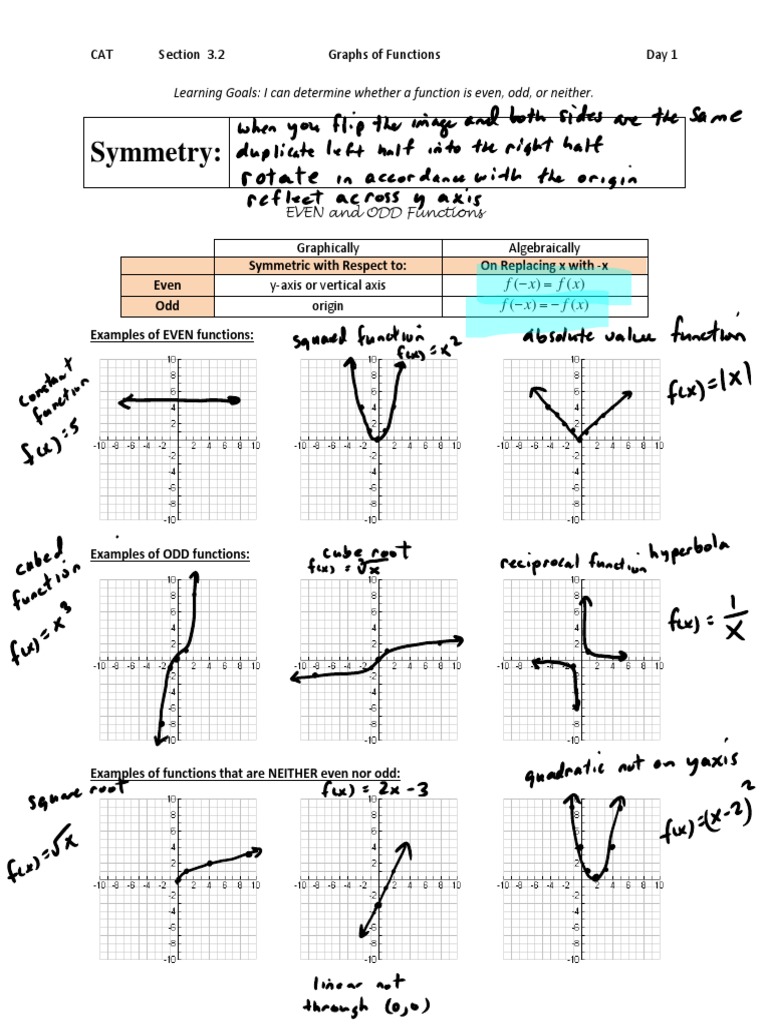 CAT Section 3.2 Graphs of Functions Day 1
Learning Goals: I can determine whether a function is even, odd, or neither.
Symmetry:
when you flip the image and both sides are the same
duplicate left half into the right half
rotate in accordance with the origin
reflect across y axis
EVEN and ODD Functions
Graphically Algebraically
Symmetric with Respect to: On Replacing x with -x
Even y-axis or vertical axis f(-x) = f(x)
Odd origin f(-x) = -f(x)
Examples of EVEN functions:
constant
function
f(x)=5
squared function
f(x)=x²
absolute value function
f(x)=|x|
Examples of ODD functions:
cubed
function
f(x)=x³
cube root
f(x)=∛x
reciprocal function hyperbola
f(x)=1/x
Examples of functions that are NEITHER even nor odd:
square root
f(x)=√x
f(x) = 2x - 3
linear not
through (0,0)
quadratic not on y axis
f(x)=(x-2)²